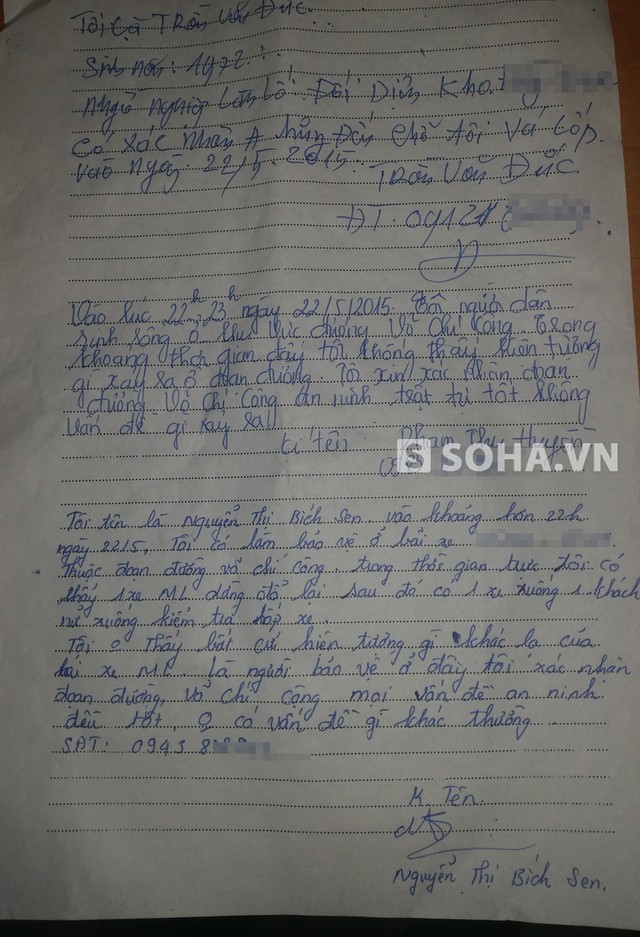 Tôi là Trần Văn Đức.
Sinh năm: 1972.
Nghề nghiệp Làm Lốp Đối Diện Kho
Có xác nhận A hùng Đến chỗ tôi Vá Lốp.
Vào Ngày 22/5.2015.
Trần Văn Đức
ĐT. 0912
Vào lúc 22h 23h ngày 22/5/2015. Tôi người dân
sinh sống ở khu vực đường Võ Chí Công. Trong
khoảng thời gian đây tôi không thấy hiện tượng
gì xảy ra ở đoạn đường. Tôi xin xác nhận đoạn
đường Võ Chí Công an ninh trật tự tốt không
vấn đề gì xảy ra!
kí tên Phạm Thu Huyền
SOHA.VN
Tôi tên là Nguyễn Thị Bích Sen. vào khoảng hơn 22h
ngày 22/5, Tôi có làm bảo vệ ở bãi xe
thuộc đoạn đường võ chí công. trong thời gian trực tôi có
thấy 1 xe ML dừng đổ lại sau đó có 1 xe xuống 1 khách
nữ xuống kiểm tra lốp xe.
Tôi o thấy bất cứ hiện tượng gì khác lạ của
xe ML. Là người bảo vệ ở đây tôi xác nhận
đoạn đường, võ chí công mọi vấn đề an ninh
đều tốt, o có vấn đề gì khác thường
SĐT: 0943 8
K Tên.
Nguyễn Thị Bích Sen.